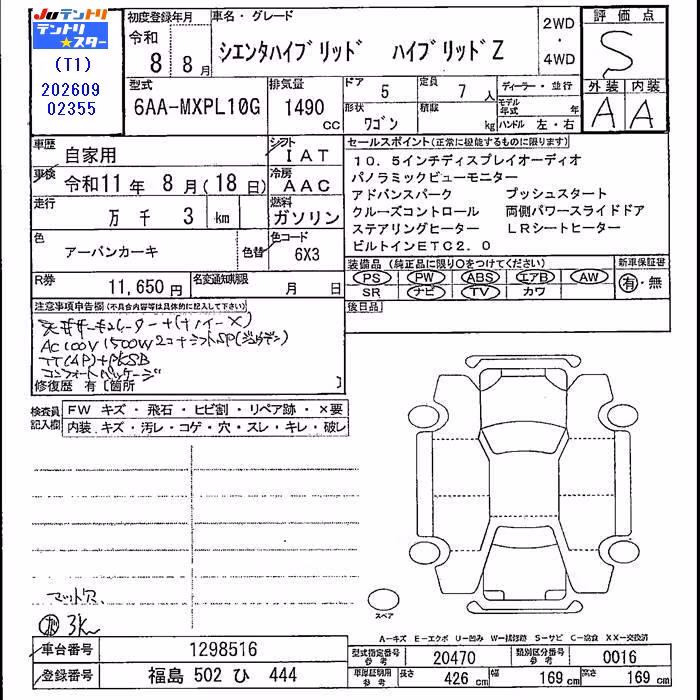 JUテントリ
テントリ
★スター
(T1)
202609
02355
初度登録年月
令和
8 8月
車名・グレード
シエンタハイブリッド ハイブリッドZ
2WD
・
4WD
評価点
S
外装 内装
A A
型式
6AA-MXPL10G
排気量
1490
CC
ドア
5
定員
7 人
形状
ワゴン
積載
kg
ディーラー・並行
モデル年式 年
ハンドル 左・右
車歴
自家用
シフト
IAT
車検
令和11年 8月(18日)
冷房
AAC
走行
万 千 3 km
燃料
ガソリン
色
アーバンカーキ
色替
色コード
6X3
R券
11,650円
名変通知期限
月 日
セールスポイント(正常に機能するものに限ります)
10.5インチディスプレイオーディオ
パノラミックビューモニター
アドバンスパーク プッシュスタート
クルーズコントロール 両側パワースライドドア
ステアリングヒーター LRシートヒーター
ビルトインETC2.0
装備品(純正品に限り○をつけてください)
PS PW ABS エアB AW
SR ナビ TV カワ
新車保証書
有・無
後日品
注意事項申告欄(不具合内容等は具体的に記入して下さい)
天井サーキュレーター+(ナノイーX)
AC100V1500W2コ+シフトSP(ジョウデン)
TT(AP)+PKSB
コンフォートパッケージ
修復歴 有〔箇所 〕
検査員記入欄
FW キズ・飛石・ヒビ割・リペア跡・×要
内装 キズ・汚レ・コゲ・穴・スレ・キレ・破レ
マット欠
3K
スペア
A-キズ E-エクボ U-凹み W-補修跡 S-サビ C-腐食 XX-交換済
車台番号
1298516
登録番号
福島 502 ひ 444
型式指定番号
参考
20470
類別区分番号
参考
0016
車庫証明用
参考
長さ
426 cm
幅
169 cm
高さ
169 cm